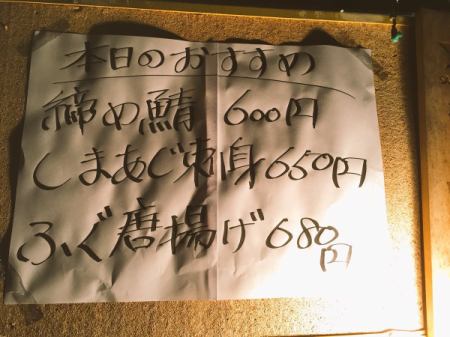 本日のおすすめ
締め鯖 600円
しまあじ刺身 650円
ふぐ唐揚げ 680円